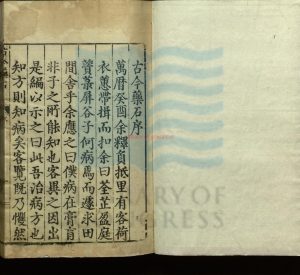 古今藥石序
萬曆癸酉余釋負抵里有客荷
衣蕙帶揖而扣余曰荃芷盈庭
薋菉屏谷子何病焉而遽求田
問舍乎余應之曰僕病在膏肓
非子之所能知也客異之因出
是編以示之曰此吾治病方也
知方則知病矣客覽既乃戄然
RARY OF
GRESS